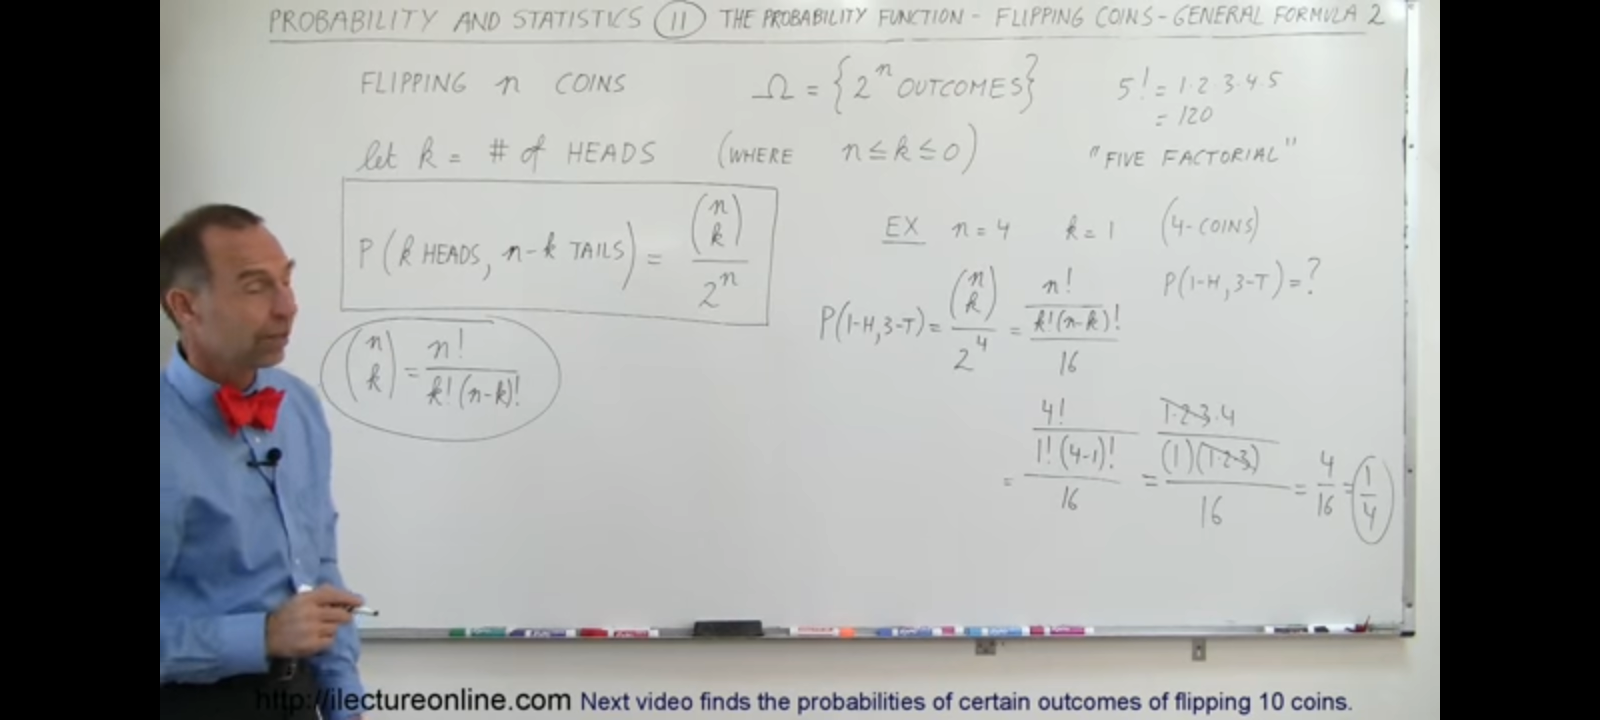 PROBABILITY AND STATISTICS 11 THE PROBABILITY FUNCTION - FLIPPING COINS - GENERAL FORMULA 2
FLIPPING n COINS
Ω = {2^n OUTCOMES}
5! = 1·2·3·4·5
= 120
"FIVE FACTORIAL"
let k = # of HEADS (WHERE n ≤ k ≤ 0)
P(k HEADS, n-k TAILS) = (n k) / 2^n
(n k) = n! / k!(n-k)!
EX n = 4 k = 1 (4-COINS)
P(1-H, 3-T) = ?
P(1-H, 3-T) = (n k) / 2^4 = n! / k!(n-k)! / 16
= 4! / 1!(4-1)! / 16 = 1·2·3·4 / (1)(1·2·3) / 16 = 4/16 = 1/4
http://ilectureonline.com Next video finds the probabilities of certain outcomes of flipping 10 coins.